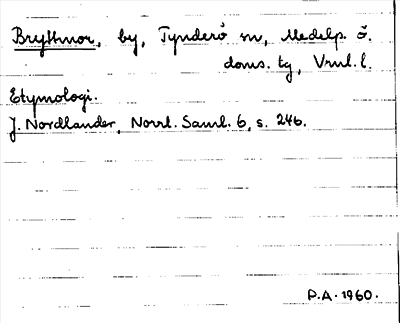 Bryttnor, by, Tynderö sn, Medelp. ö.
doms. tg, Vrnl. l.
Etymologi.
J. Nordlander, Norrl. Saml. 6, s. 246.
P.A. 1960.